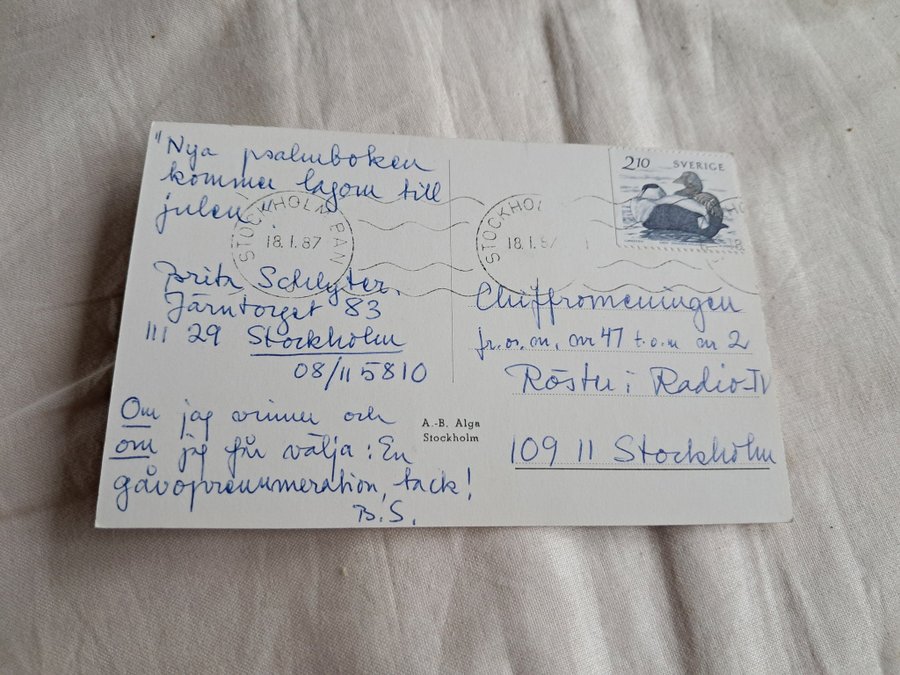 "Nya psalmboken
kommer lagom till
julen"
Brita Schlyter.
Järntorget 83
111 29 Stockholm
08/115810
Om jag vinner och
om jag får välja: En
gåvoprenumeration, tack!
B.S.
A.-B. Alga
Stockholm
STOCKHOLM BAN
18.1.87
STOCKHOL
18.1.87
210 SVERIGE
Chiffromeningen
fr.o.m. nr 47 t.o.m nr 2
Röster i Radio-TV
109 11 Stockholm